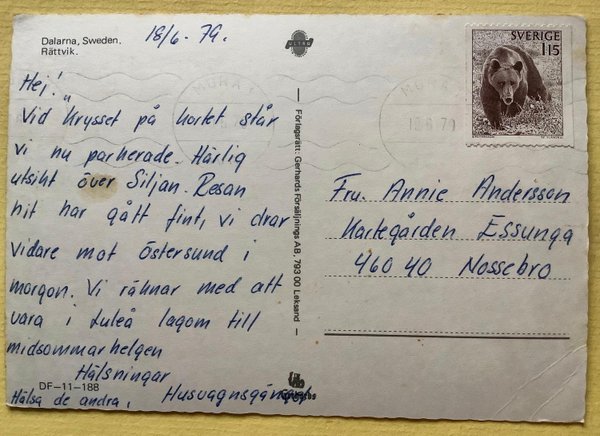 Dalarna, Sweden.
Rättvik.
18/6 - 79.
ULTRA
Hej!
Vid krysset på kortet står
vi nu parkerade. Härlig
utsikt över Siljan. Resan
hit har gått fint, vi drar
vidare mot Östersund i
morgon. Vi räknar med att
vara i Luleå lagom till
midsommarhelgen
Hälsningar
Husvagnsgänget
Hälsa de andra.
DF-11-188
Förlagsrätt: Gerhards Försäljnings AB, 793 00 Leksand
SVERIGE
115
MORA
18 6 79
Fru. Annie Andersson
Kartegården Essunga
460 40 Nossebro